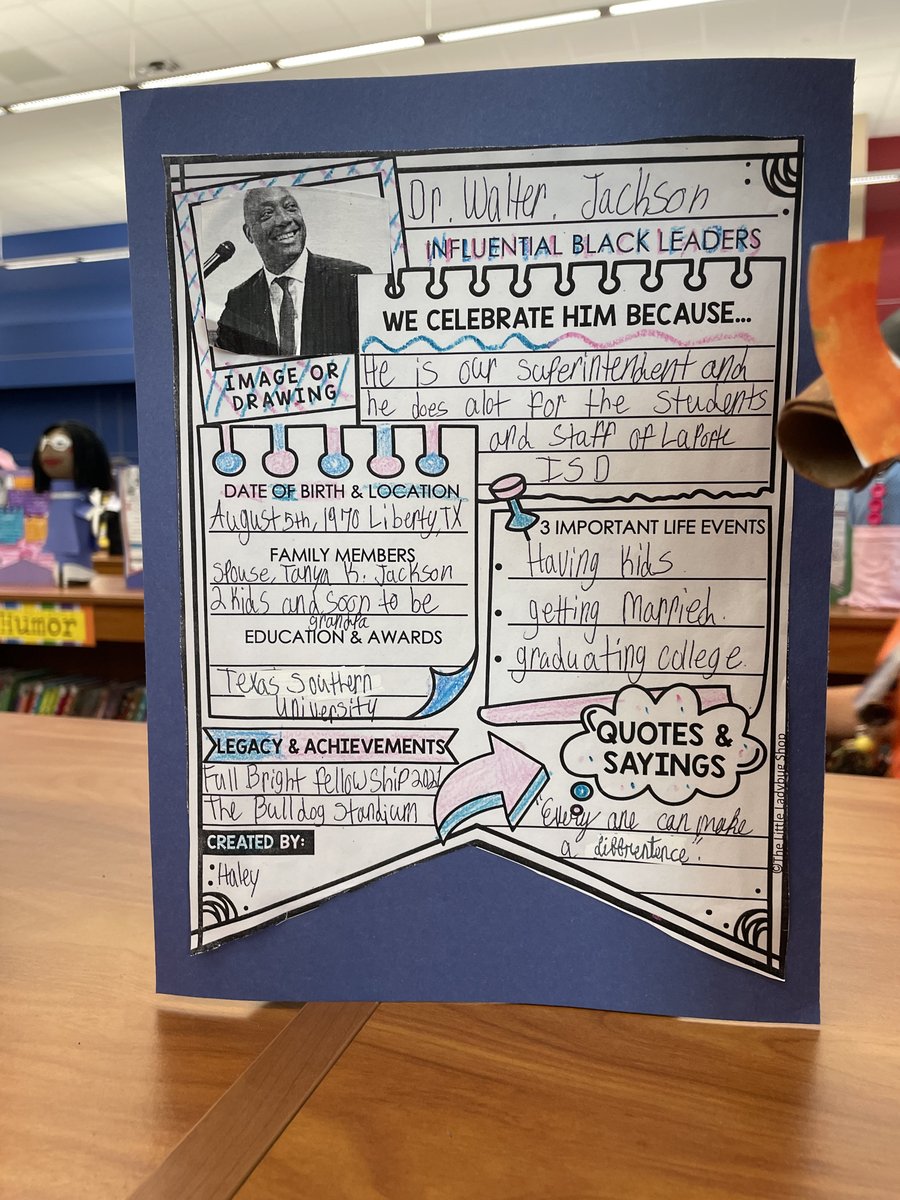 Dr. Walter. Jackson
INFLUENTIAL BLACK LEADERS
WE CELEBRATE HIM BECAUSE...
He is our superintendent and
he does alot for the Students
and staff of Laporte
ISD
IMAGE OR
DRAWING
DATE OF BIRTH & LOCATION
August 5th, 1970 Liberty, TX
FAMILY MEMBERS
Spouse, Tanya K. Jackson
2 kids and soon to be
grandpa
EDUCATION & AWARDS
Texas Southern
University
3 IMPORTANT LIFE EVENTS
• Having kids.
• getting Married.
• graduating college.
LEGACY & ACHIEVEMENTS
Full Bright fellowship 2021
The Bulldog Standium
QUOTES &
SAYINGS
"Every one can make
a diffrentence".
CREATED BY:
Haley
©The Little Ladybug Shop
Humor